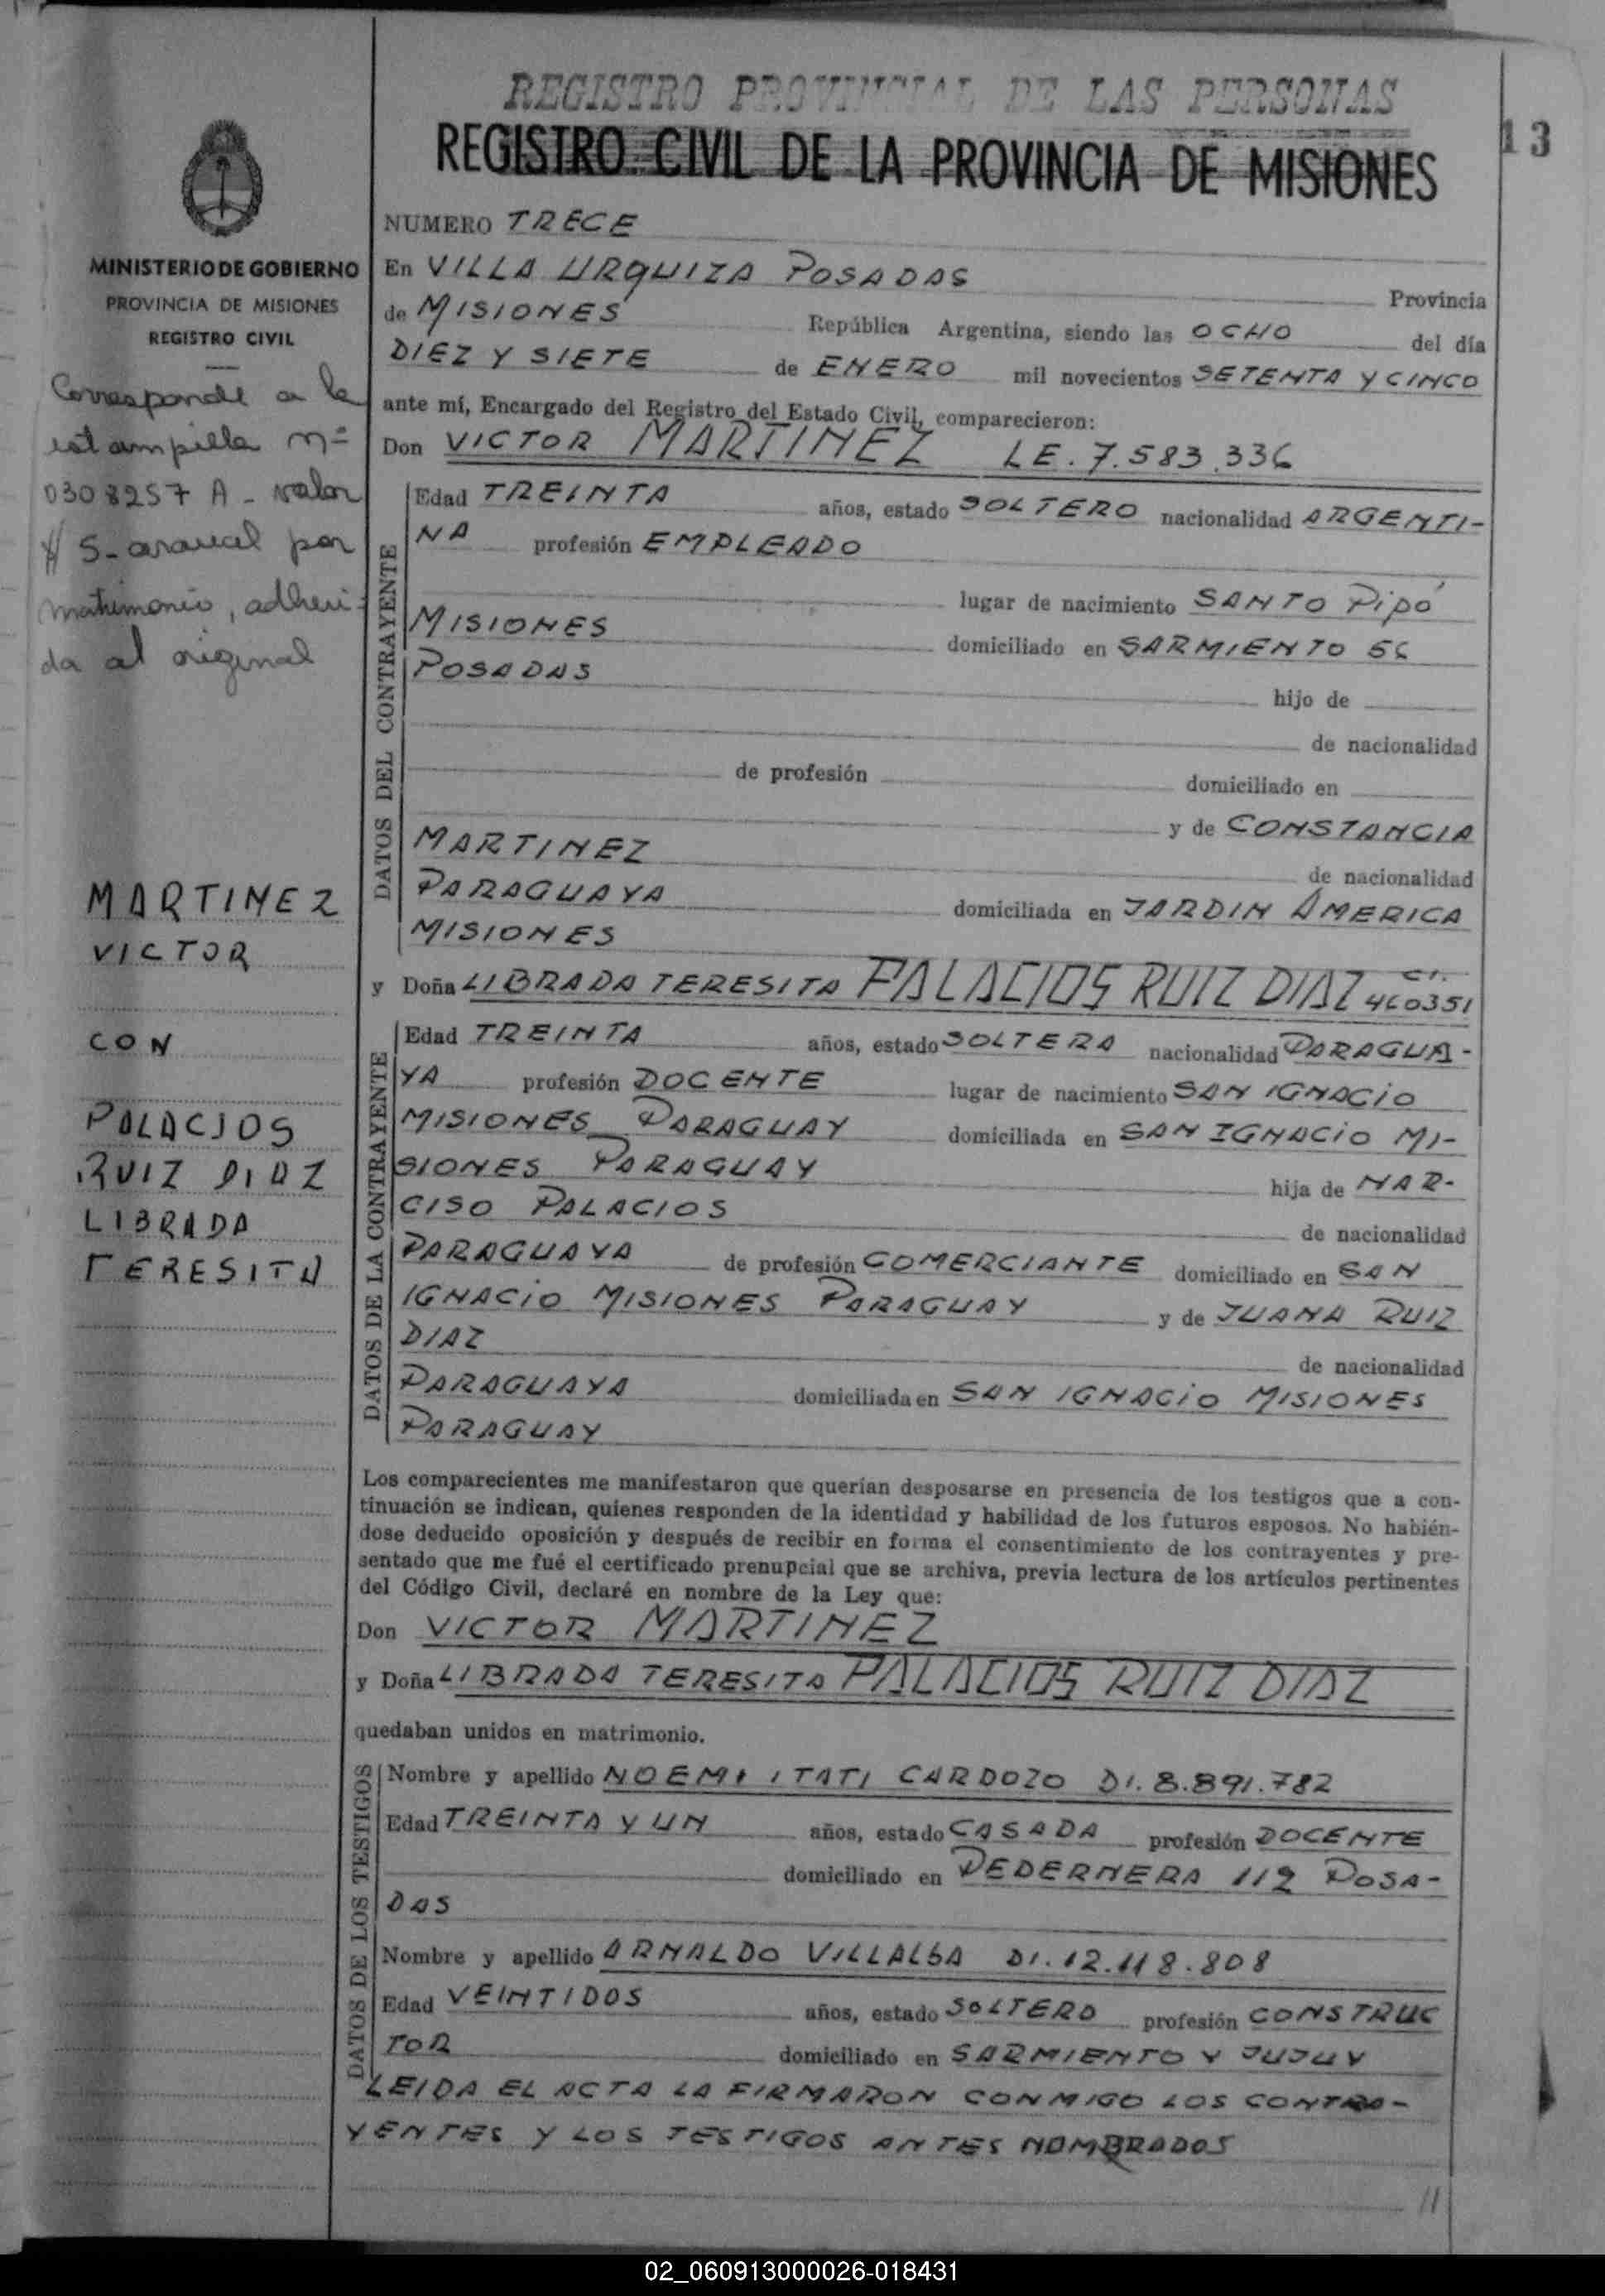 REGISTRO PROVINCIAL DE LAS PERSONAS
REGISTRO CIVIL DE LA PROVINCIA DE MISIONES
13
NUMERO TRECE
En VILLA URQUIZA POSADAS Provincia
de MISIONES República Argentina, siendo las OCHO del día
DIEZ Y SIETE de ENERO mil novecientos SETENTA Y CINCO
ante mí, Encargado del Registro del Estado Civil, comparecieron:
Don VICTOR MARTINEZ LE. 7.583.336
Edad TREINTA años, estado SOLTERO nacionalidad ARGENTI-
NA profesión EMPLEADO
lugar de nacimiento SANTO Pipó
MISIONES domiciliado en SARMIENTO 56
POSADAS hijo de
de nacionalidad
de profesión domiciliado en
y de CONSTANCIA
MARTINEZ de nacionalidad
PARAGUAYA domiciliada en JARDIN AMERICA
MISIONES
DATOS DEL CONTRAYENTE
y Doña LIBRADA TERESITA PALACIOS RUIZ DIAZ CI. 460351
Edad TREINTA años, estado SOLTERA nacionalidad PARAGUA-
YA profesión DOCENTE lugar de nacimiento SAN IGNACIO
MISIONES PARAGUAY domiciliada en SAN IGNACIO MI-
SIONES PARAGUAY hija de NAR-
CISO PALACIOS de nacionalidad
PARAGUAYA de profesión COMERCIANTE domiciliado en SAN
IGNACIO MISIONES PARAGUAY y de JUANA RUIZ
DIAZ de nacionalidad
PARAGUAYA domiciliada en SAN IGNACIO MISIONES
PARAGUAY
DATOS DE LA CONTRAYENTE
Los comparecientes me manifestaron que querían desposarse en presencia de los testigos que a con-
tinuación se indican, quienes responden de la identidad y habilidad de los futuros esposos. No habién-
dose deducido oposición y después de recibir en forma el consentimiento de los contrayentes y pre-
sentado que me fué el certificado prenupcial que se archiva, previa lectura de los artículos pertinentes
del Código Civil, declaré en nombre de la Ley que:
Don VICTOR MARTINEZ
y Doña LIBRADA TERESITA PALACIOS RUIZ DIAZ
quedaban unidos en matrimonio.
Nombre y apellido NOEMI ITATI CARDOZO DI. 8.891.782
Edad TREINTA Y UN años, estado CASADA profesión DOCENTE
domiciliado en PEDERNERA 112 POSA-
DAS
Nombre y apellido ARNALDO VILLALBA DI. 12.118.808
Edad VEINTIDOS años, estado SOLTERO profesión CONSTRUC
TOR domiciliado en SARMIENTO Y JUJUY
DATOS DE LOS TESTIGOS
LEIDA EL ACTA LA FIRMARON CONMIGO LOS CONTRA-
YENTES Y LOS TESTIGOS ANTES NOMBRADOS
//
MINISTERIO DE GOBIERNO
PROVINCIA DE MISIONES
REGISTRO CIVIL
Corresponde a la
estampilla nº
0308257 A - valor
$ 5- arancel por
matrimonio, adheri-
da al original
MARTINEZ
VICTOR
CON
PALACIOS
RUIZ DIAZ
LIBRADA
TERESITA
02_060913000026-018431